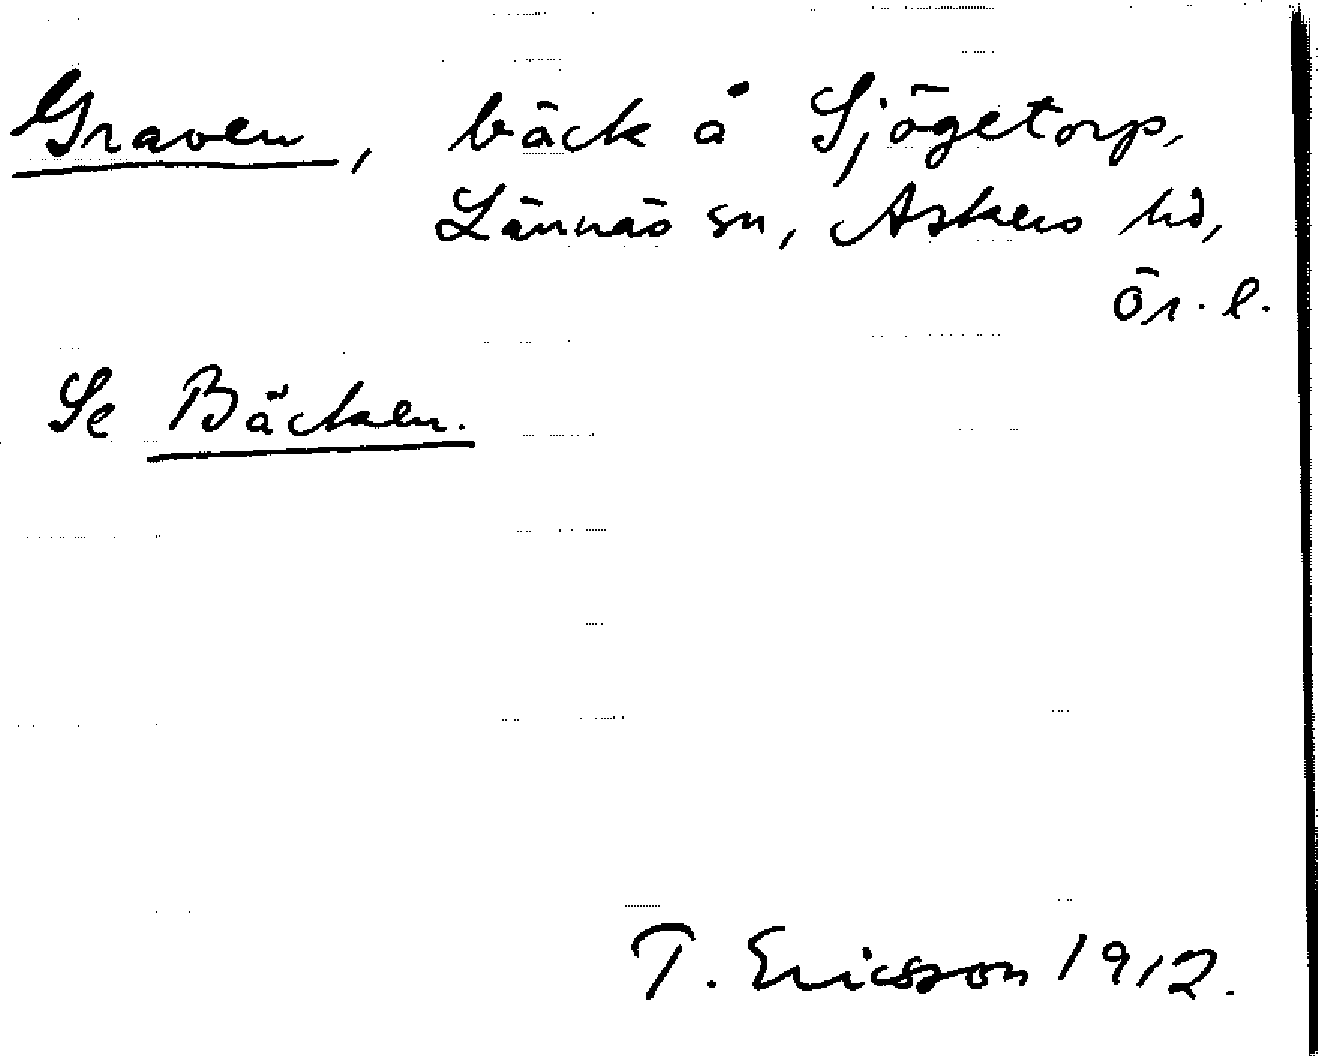 Graven, bäck å Sjögetorp,
Lännäs sn, Askers hd,
Ör. l.
Se Bäcken.
T. Ericsson 1912.